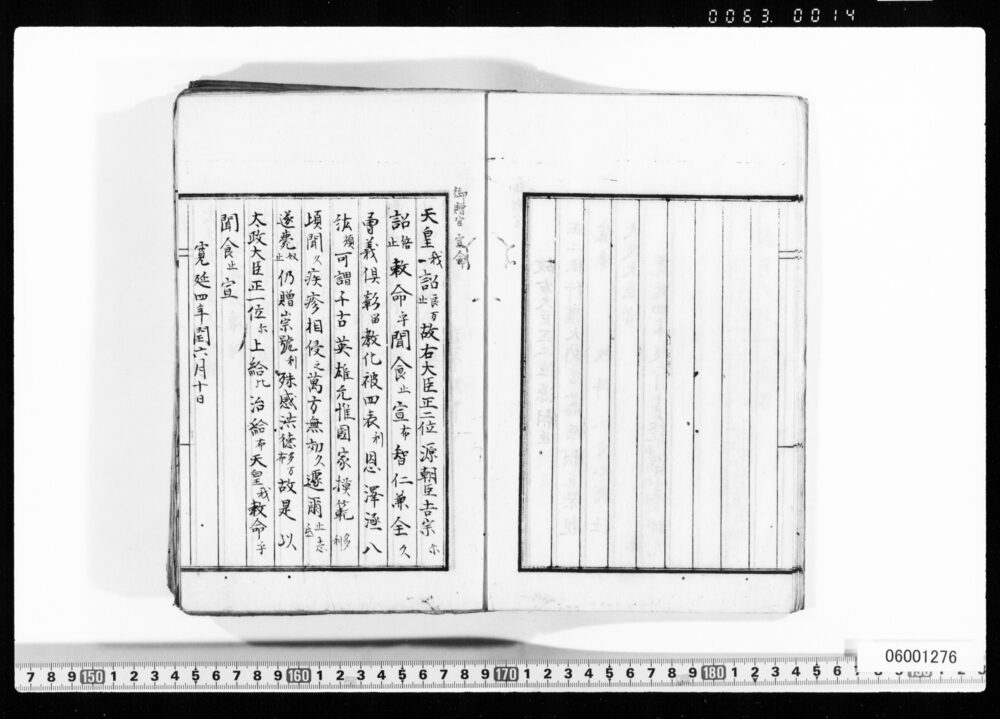 0063. 0014
御贈官 宣命
天皇我詔良万止故右大臣正二位源朝臣吉宗尓
詔倍止敕命乎聞食止宣布智仁兼全久
勇義俱彰留教化被四表利恩澤逦八
紘須可謂千古英雄尤惟國家摸範多利
頃聞久疾疹相侵之萬方無効久遽爾止志
遂薨奴止仍贈崇號利殊感洪德布多万故是以
太政大臣正一位尓上給比治給布天皇我敕命乎
聞食止宣
寛延四年閏六月十日
06001276
7 8 9 150 1 2 3 4 5 6 7 8 9 160 1 2 3 4 5 6 7 8 9 170 1 2 3 4 5 6 7 8 9 180 1 2 3 4 5 6